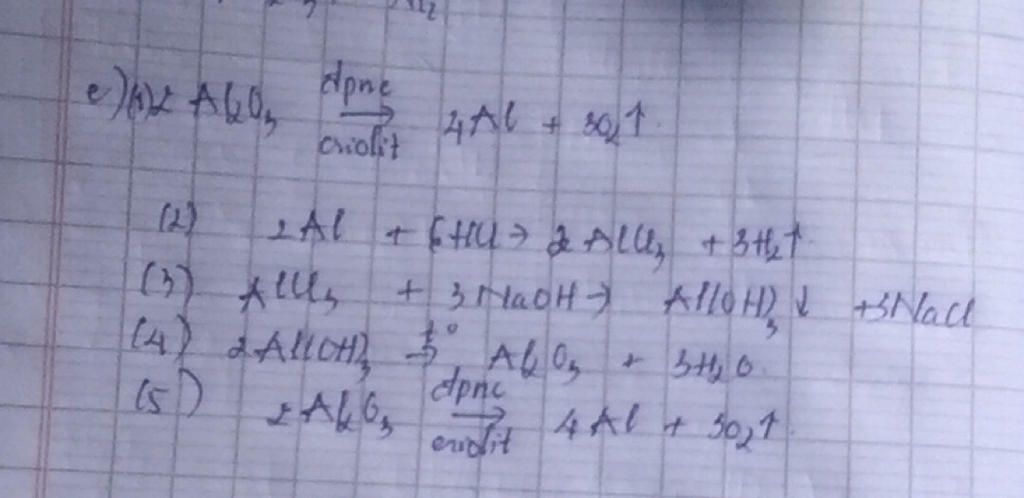 e) (1) 2 Al2O3 đpnc → criolit 4Al + 3O2↑
(2) 2Al + 6HCl → 2AlCl3 + 3H2↑
(3) AlCl3 + 3NaOH → Al(OH)3↓ + 3NaCl
(4) 2Al(OH)3 t° → Al2O3 + 3H2O
(5) 2Al2O3 đpnc → criolit 4Al + 3O2↑